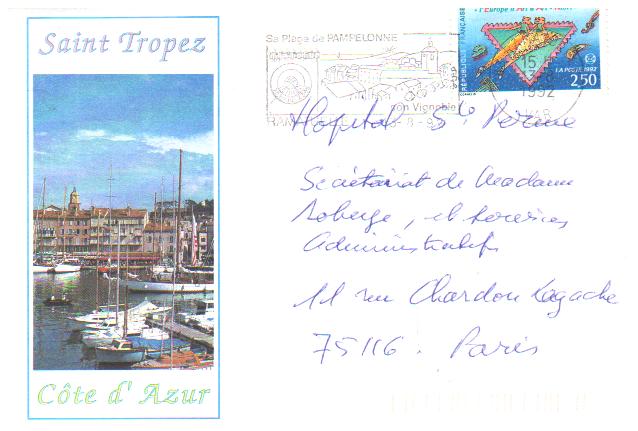 Saint Tropez
Côte d' Azur
Sa Plage de PAMPELONNE
son Vignoble
RAM
-8-9
15
1992
VAR
RÉPUBLIQUE FRANÇAISE
LA POSTE 1992
2,50
Hopital Ste Perine
Secrétariat de Madame
Roberge, et Services
Administratifs
11 rue Chardon Lagache
75116. Paris